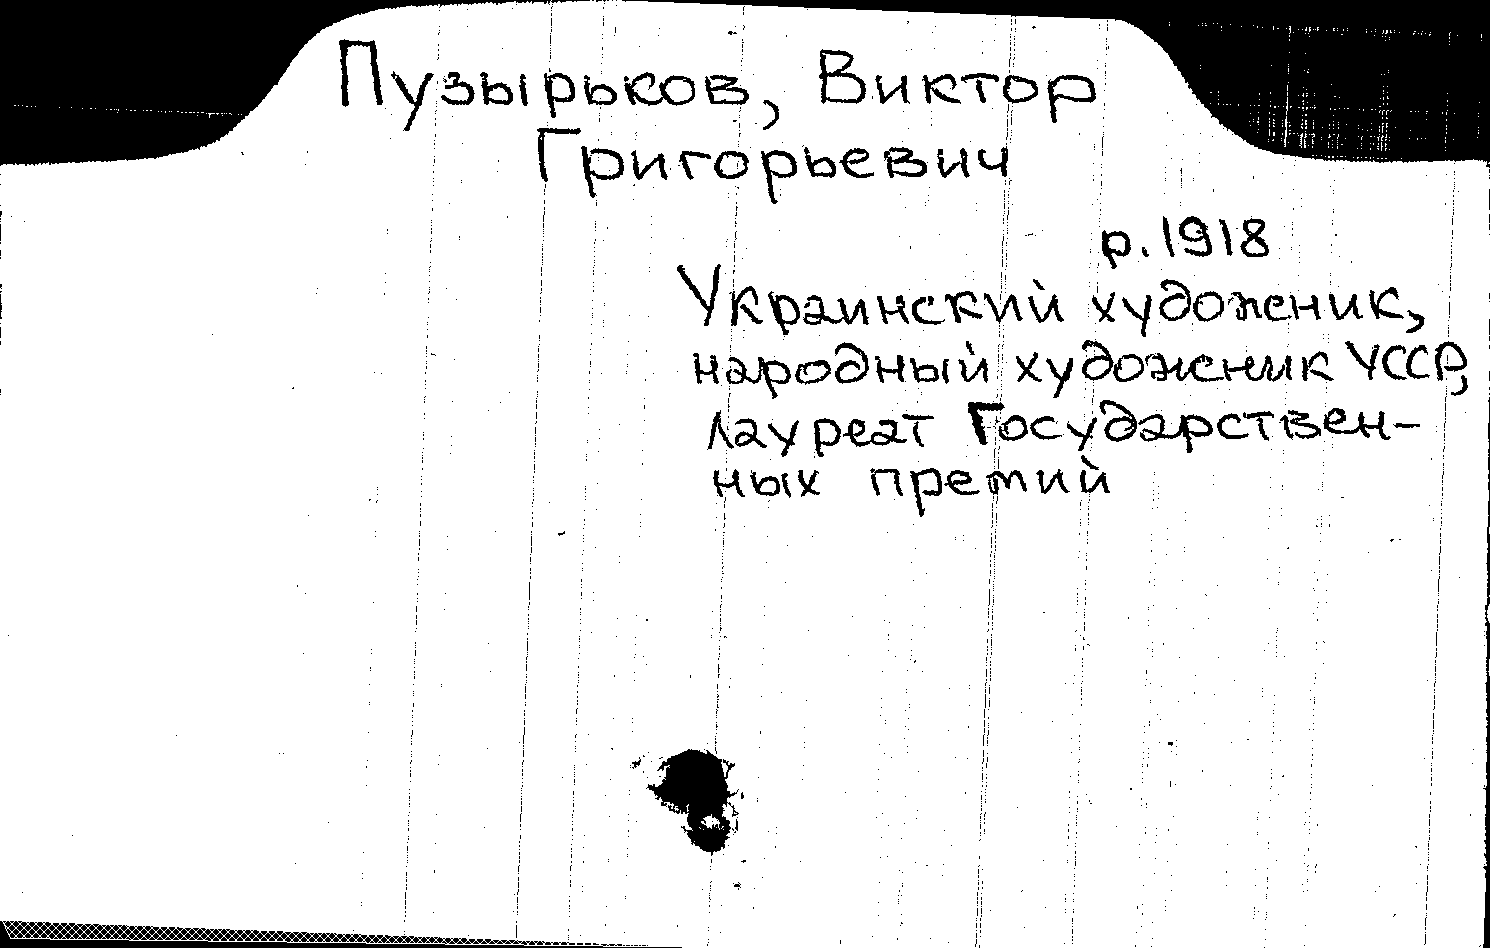 Пузырьков, Виктор
Григорьевич
р. 1918
Украинский художник,
народный художник УССР,
лауреат Государствен-
ных премий